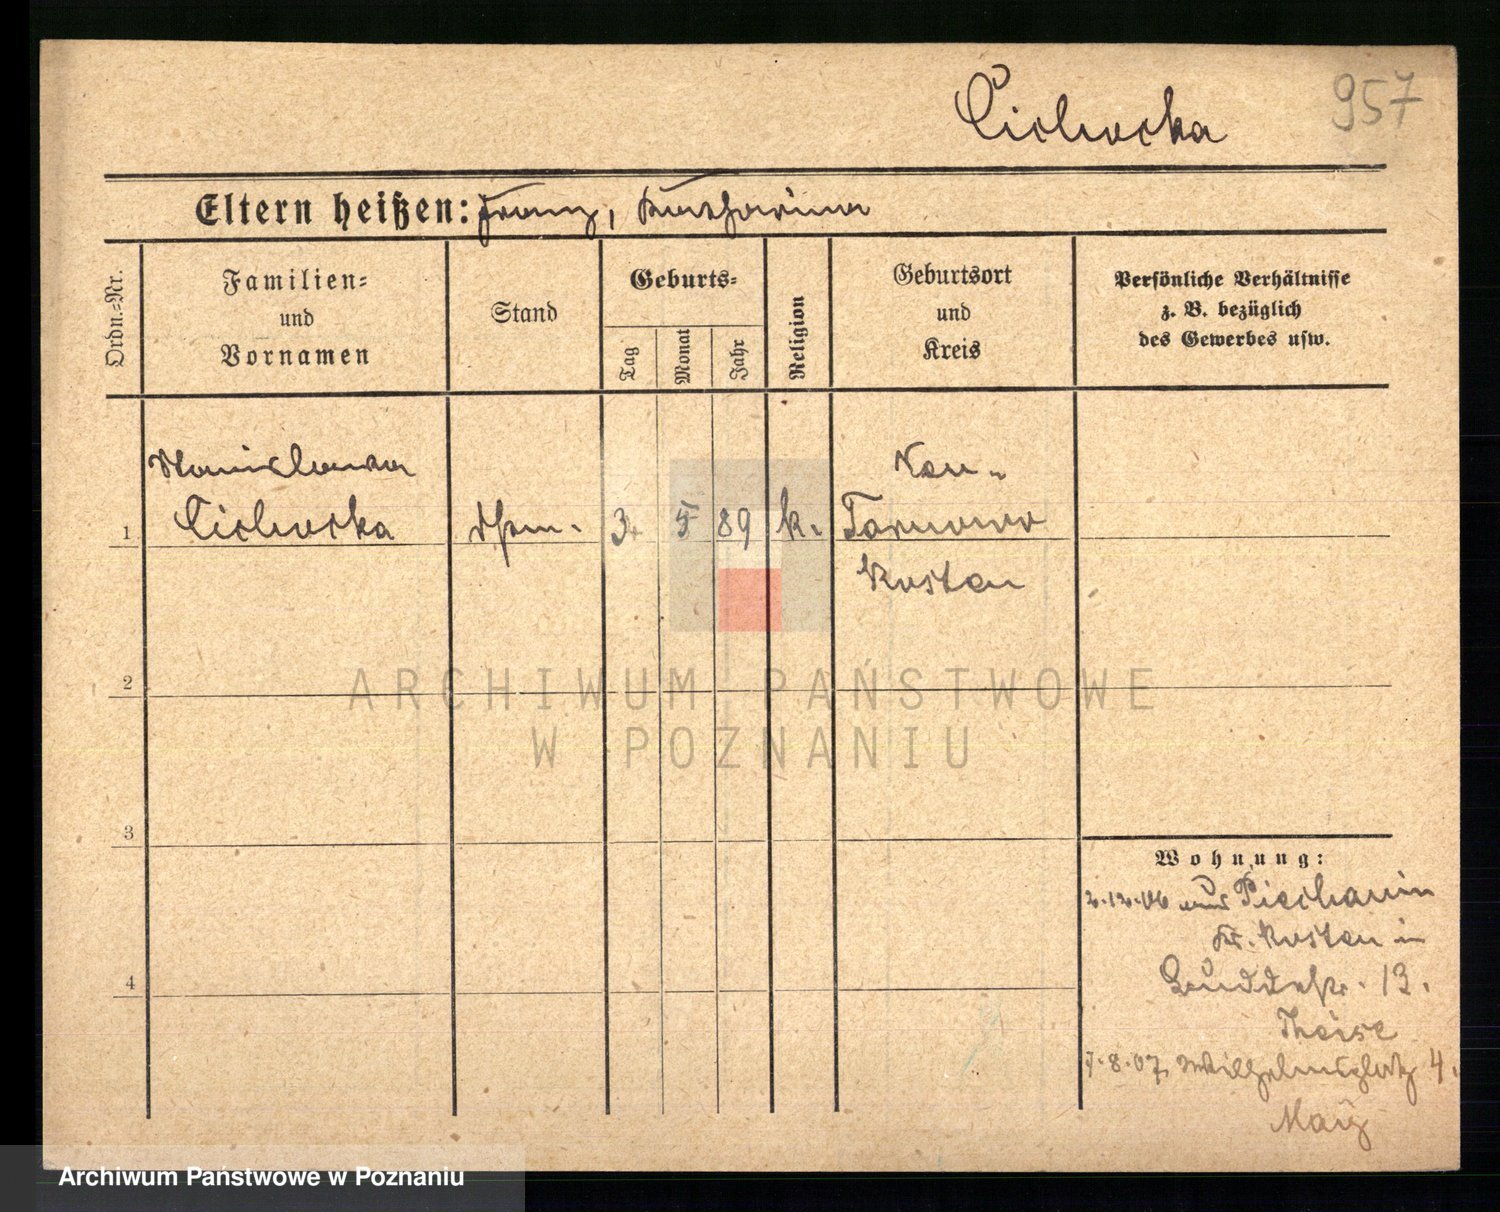 Cichocka 957
Eltern heißen: Franz, Katharina
Ordn.=Nr.
Familien=
und
Vornamen
Stand
Geburts=
Tag
Monat
Jahr
Religion
Geburtsort
und
Kreis
Persönliche Verhältnisse
z. B. bezüglich
des Gewerbes usw.
Stanislawa
Cichocka
1
3. 5 89 k.
Neu-
Tarnowo
Kosten
2
3
4
Wohnung:
Piechanin
Kr. Kosten in
13.
Theise
8.07. Wilhelmsplatz 4.
ARCHIWUM PAŃSTWOWE
W POZNANIU
Archiwum Państwowe w Poznaniu